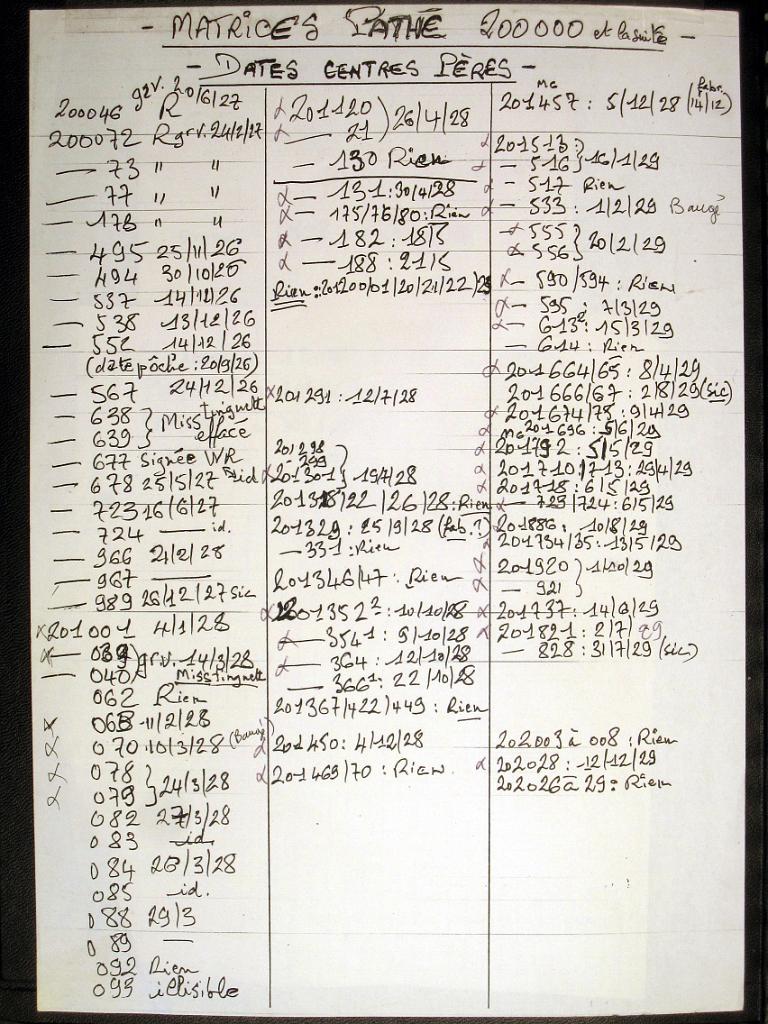 - MATRICES PATHÉ 200000 et la suite -
- DATES CENTRES PÈRES -
200046 grv. R 20/6/27
200072 R grv. 24/2/27
— 73 " "
— 77 " "
— 178 " "
— 495 25/11/26
— 494 30/10/26
— 537 14/12/26
— 538 13/12/26
— 552 14/12/26
(date pôche : 20/9/26)
— 567 24/12/26
— 638 } Miss tinguett
— 639 } effacé
— 677 Signée WR
— 678 25/5/27 id
— 723 16/6/27
— 724 — id.
— 966 21/2/28
— 967 —
— 989 26/12/27 sic
x 201001 4/1/28
x — 039 grv. 14/3/28
— 040 Misstinguett
062 Rien
x 063 11/2/28
α 070 10/3/28 (Baugé)
α 078 }
α 079 } 24/3/28
082 27/3/28
083 id.
084 26/3/28
085 id.
088 29/3
089 —
092 Rien
093 illisible
α 201120 )
α — 21 ) 26/4/28
— 130 Rien
α — 131 : 30/4/28
α — 175/76/80 : Rien
α — 182 : 18/5
α — 188 : 21/5
Rien : 201200/01/20/21/22/23
α 201291 : 12/7/28
201298
— 299
α 201301 } 19/4/28
201318/22/26/28 : Rien
201329 : 25/9/28 (fab. ?)
— 331 : Rien
201346/47 : Rien
α 201352² : 10/10/28
α — 354¹ : 9/10/28
α — 364 : 12/10/28
— 366¹ : 22/10/28
201367/422/449 : Rien
α 201450 : 4/12/28
α 201469/70 : Rien.
MC
201457 : 5/12/28 (fabr. 14/12)
α 201513 : }
α — 516 } 16/1/29
α — 517 Rien
α — 533 : 1/2/29 Baugé
α — 555 }
α — 556 } 20/2/29
α — 590/594 : Rien
α — 595 : 7/3/29
α — 613² : 15/3/29
— 614 : Rien
α 201664/65 : 8/4/29
201666/67 : 2/8/29 (sic)
α 201674/75 : 9/4/29
α MC 201696 : 5/6/29
α 201792 : 5/5/29
α 201710/713 : 29/4/29
α 201718 : 6/5/29
α — 723/724 : 6/5/29
α 201886 : 10/8/29
α 201734/35 : 13/5/29
α 201920 }
α — 921 } 1/10/29
α 201737 : 14/6/29
α 201821 : 2/7/29
— 828 : 31/7/29 (sic)
202003 à 008 : Rien
α 202028 : 12/12/29
202026 à 29 : Rien